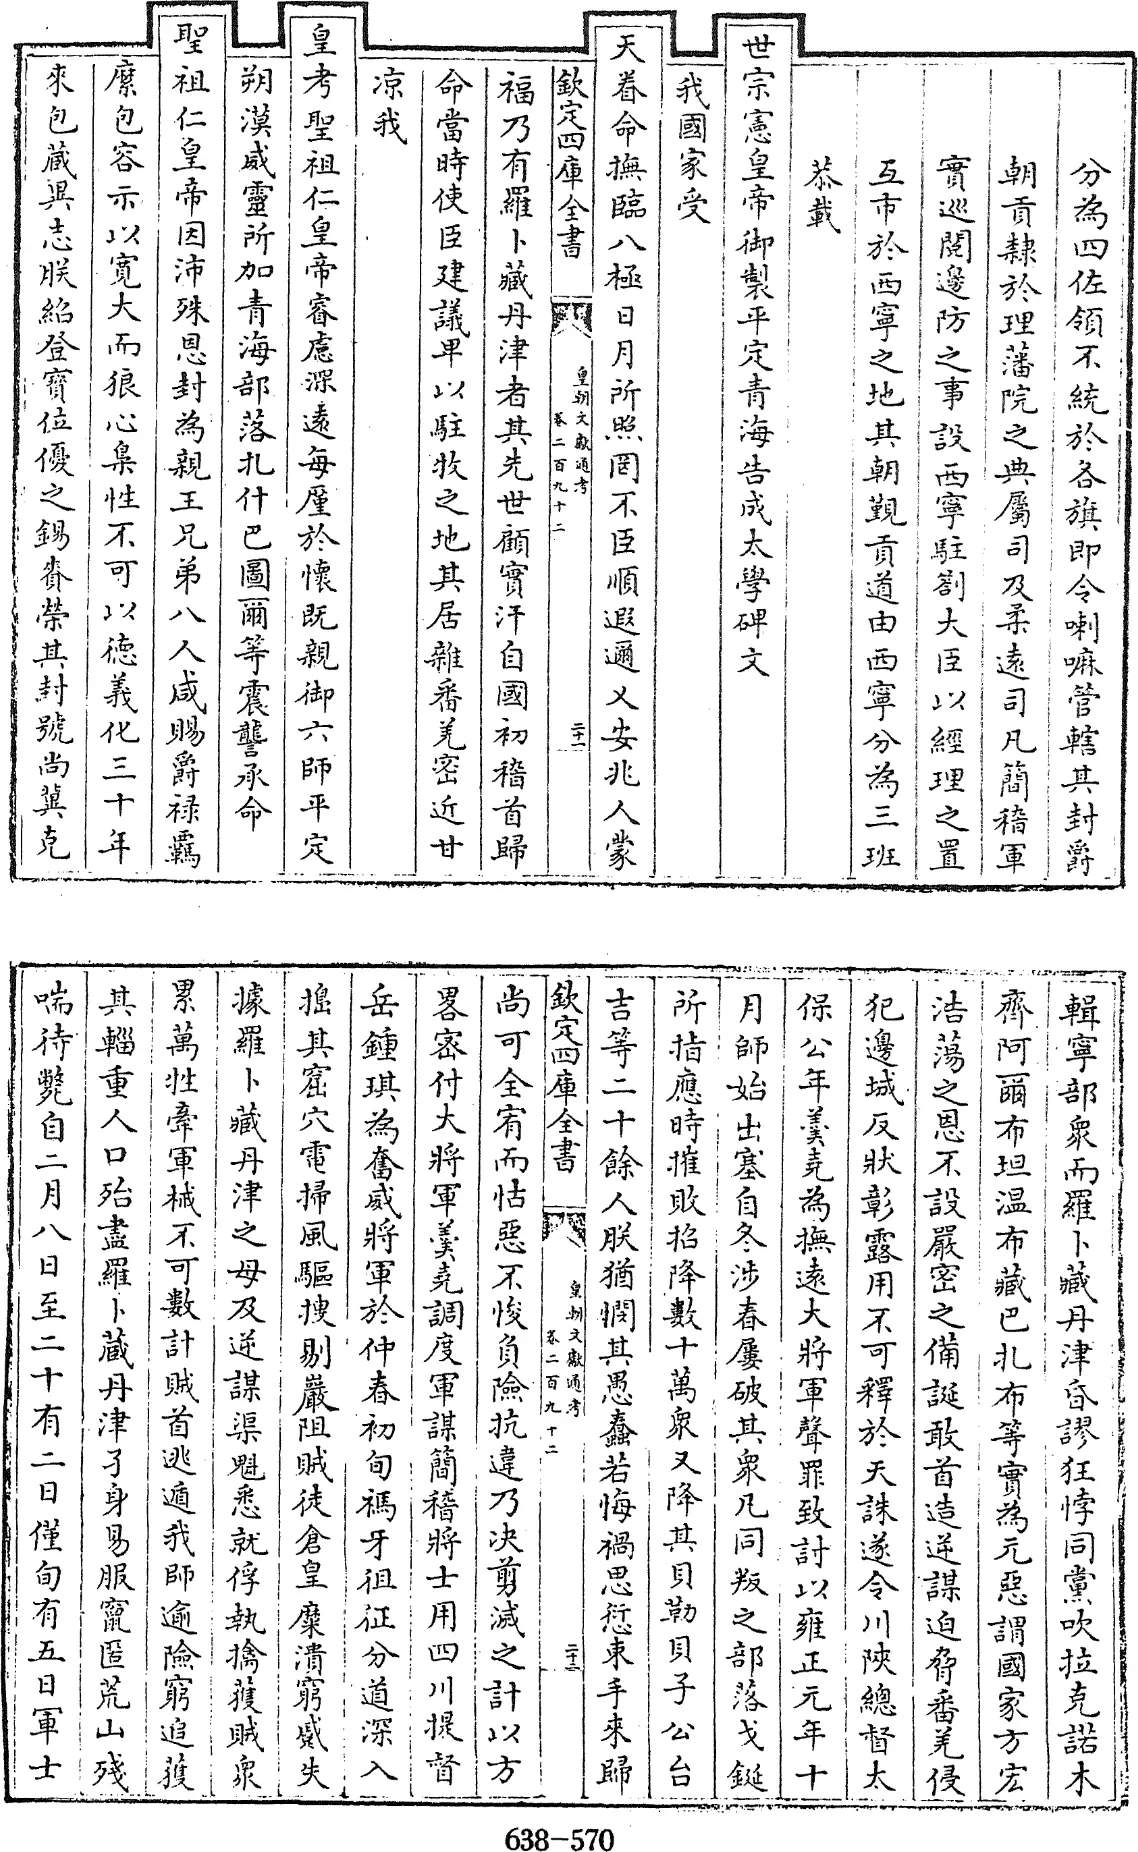 分為四佐領不統於各旗即令喇嘛管轄其封爵
朝貢隸於理藩院之典屬司及柔遠司凡簡稽軍
實巡閱邊防之事設西寧駐劄大臣以經理之置
互市於西寧之地其朝覲貢道由西寧分為三班
恭載
世宗憲皇帝御製平定青海告成太學碑文
我國家受
天眷命撫臨八極日月所照罔不臣順遐邇乂安兆人蒙
欽定四庫全書
皇朝文獻通考
卷二百九十二
二十一
福乃有羅卜藏丹津者其先世顧實汗自國初稽首歸
命當時使臣建議畀以駐牧之地其居雜番羌密近甘
涼我
皇考聖祖仁皇帝睿慮深遠每厪於懷既親御六師平定
朔漠威靈所加青海部落扎什巴圖爾等震讋承命
聖祖仁皇帝因沛殊恩封為親王兄弟八人咸賜爵祿覊
縻包容示以寬大而狼心梟性不可以德義化三十年
來包藏異志朕紹登寶位優之錫賚榮其封號尚冀克
輯寧部衆而羅卜藏丹津昏謬狂悖同黨吹拉克諾木
齊阿爾布坦溫布藏巴扎布等實為元惡謂國家方宏
浩蕩之恩不設嚴密之備誕敢首造逆謀迫脅番羌侵
犯邊城反狀彰露用不可釋於天誅遂令川陝總督太
保公年羹堯為撫遠大將軍聲罪致討以雍正元年十
月師始出塞自冬涉春屢破其衆凡同叛之部落戈鋋
所指應時摧敗招降數十萬衆又降其貝勒貝子公台
吉等二十餘人朕猶憫其愚蠢若悔禍思愆束手來歸
欽定四庫全書
皇朝文獻通考
卷二百九十二
二十二
尚可全宥而怙惡不悛負險抗違乃決剪滅之計以方
畧密付大將軍羹堯調度軍謀簡稽將士用四川提督
岳鍾琪為奮威將軍於仲春初旬禡牙徂征分道深入
搗其窟穴電掃風驅搜剔巖阻賊徒倉皇糜潰窮蹙失
據羅卜藏丹津之母及逆謀渠魁悉就俘執擒獲賊衆
累萬牲牽軍械不可數計賊首逃遁我師逾險窮追獲
其輜重人口殆盡羅卜藏丹津孑身易服竄匿荒山殘
喘待斃自二月八日至二十有二日僅旬有五日軍士
638-570